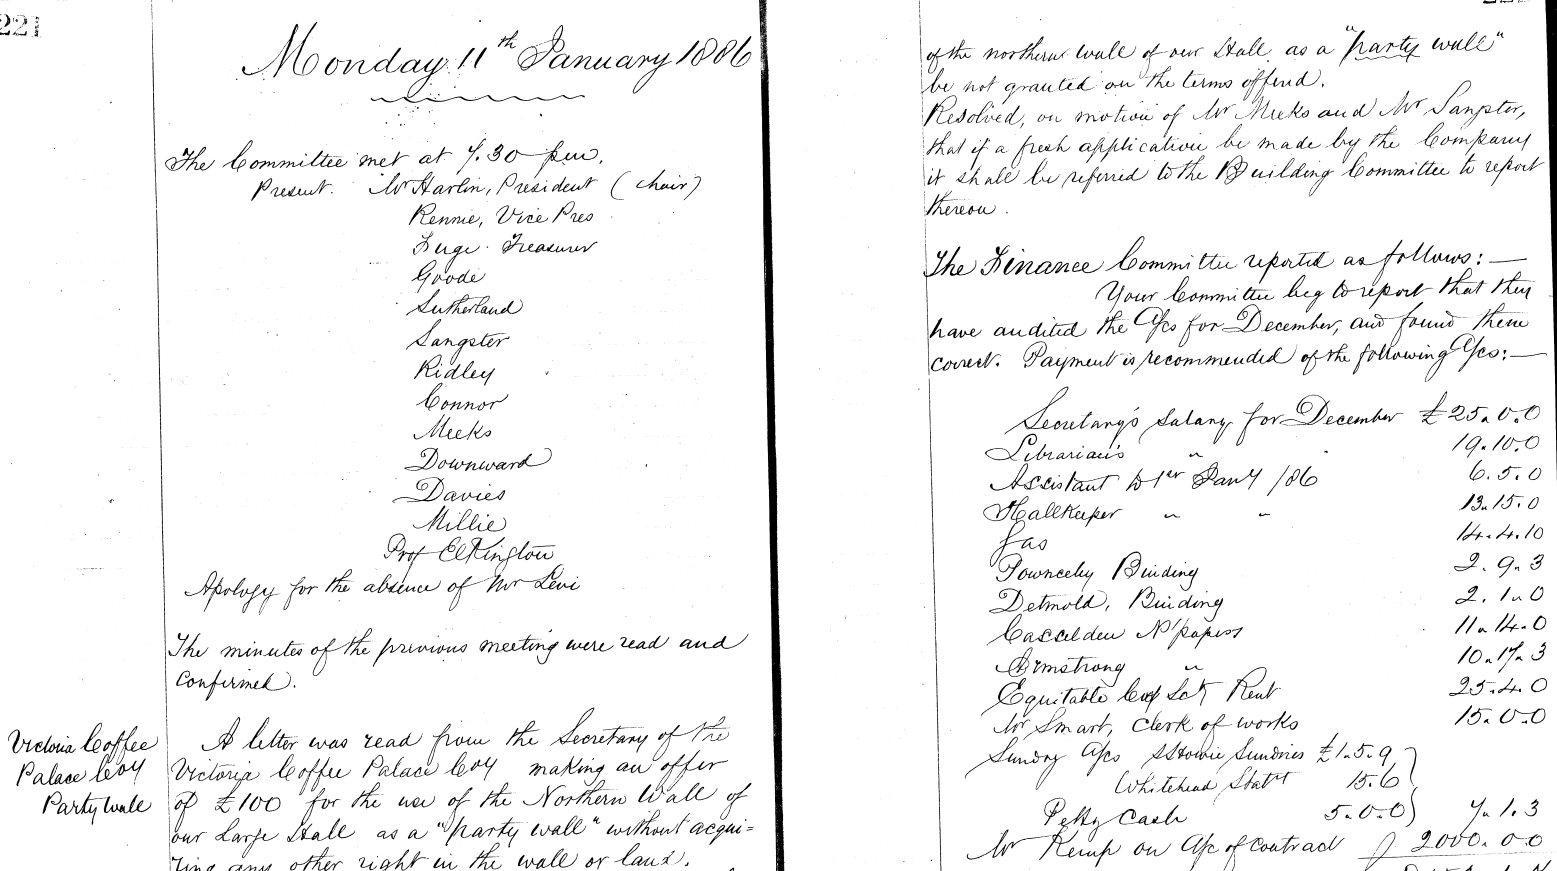 221
Monday 11th January 1886
The Committee met at 7.30 pm.
Present. Mr Harlin, President (chair)
Rennie, Vice Pres
Fuge. Treasurer
Goode
Sutherland
Sangster
Ridley
Connor
Meeks
Downward
Davies
Millie
Prof Elkington
Apology for the absence of Mr Levi
The minutes of the previous meeting were read and
confirmed.
Victoria Coffee
Palace Coy
Party wall
A letter was read from the Secretary of the
Victoria Coffee Palace Coy making an offer
of £100 for the use of the Northern Wall of
our Large Hall as a "party wall" without acqui=
ring any other right in the wall or land.
of the northern wall of our Hall as a "party wall"
be not granted on the terms offered.
Resolved, on motion of Mr Meeks and Mr Sangster,
that if a fresh application be made by the Company
it shall be referred to the Building Committee to report
thereon.
The Finance Committee reported as follows:—
Your Committee beg to report that they
have audited the a/cs for December, and found them
correct. Payment is recommended of the following a/cs:—
Secretary's salary for December £25.0.0
Librarian's " 19.10.0
Assistant to 1st Jany /86 6.5.0
Hallkeeper " " 13.15.0
Gas 14.4.10
Towneley Binding 2.9.3
Detmold, Binding 2.1.0
Casselden N'papers 11.14.0
Armstrong " 10.17.3
Equitable Coop Socy Rent 25.4.0
Mr Smart, Clerk of works 15.0.0
Sundry a/cs Sundries £1.5.9
Whitehead Stat 15.6
Petty Cash 5.0.0 7.1.3
Mr Kemp on a/c of contract 2000.0.0